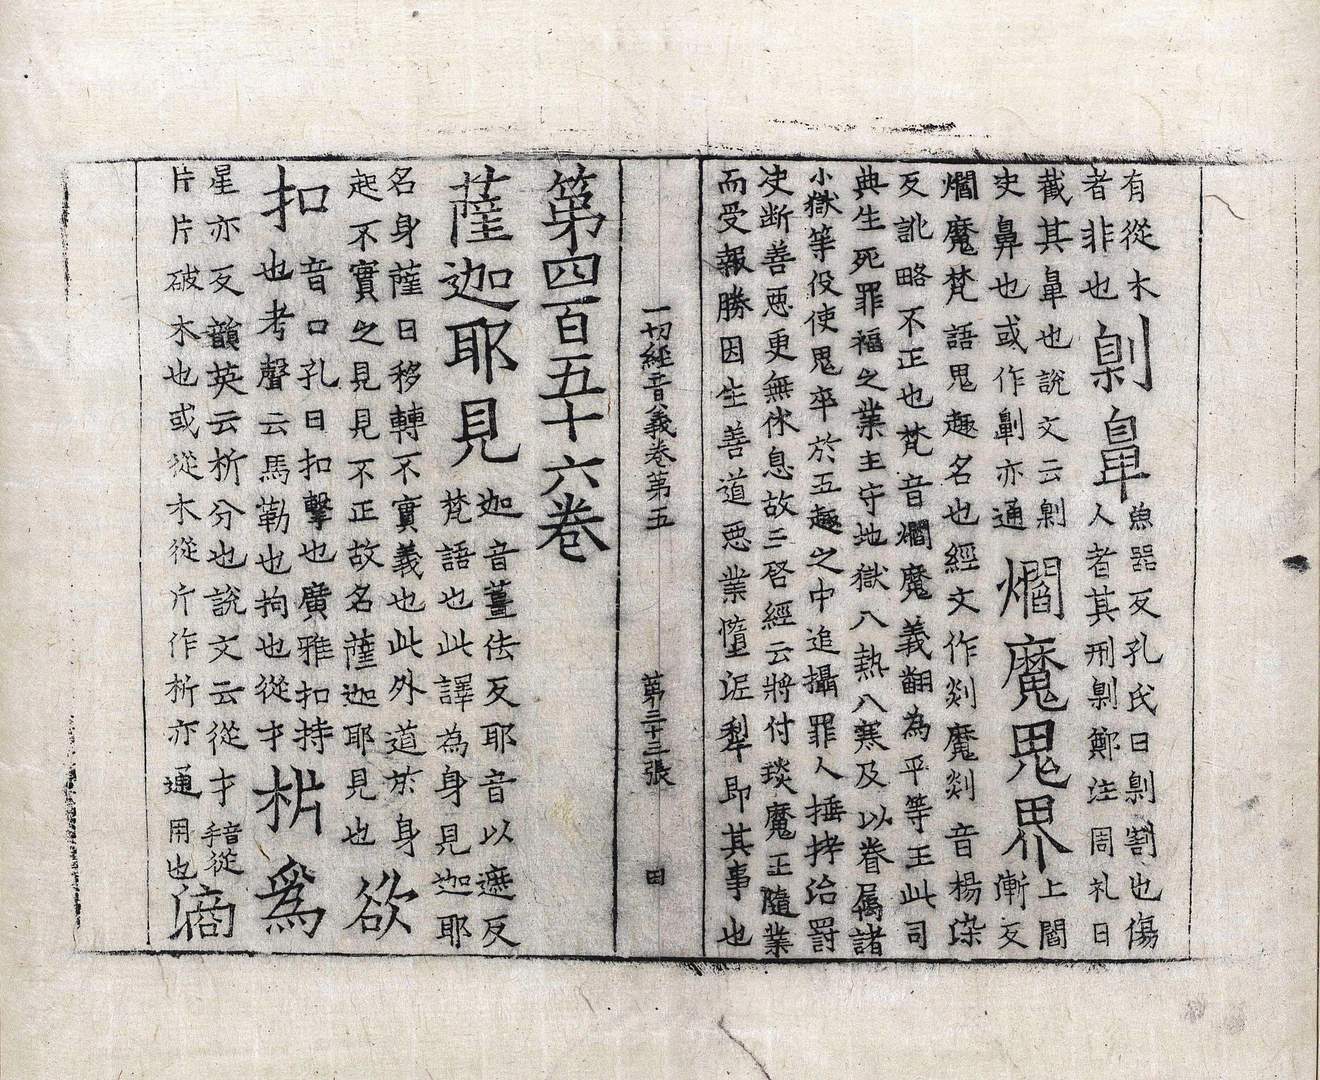 有從木
者非也
㓷鼻
魚器反孔氏曰㓷割也傷
人者其刑㓷鄭注周礼曰
截其鼻也說文云㓷
决鼻也或作劓亦通
爓魔鬼界
上閻
漸反
爓魔梵語鬼趣名也經文作剡魔剡音楊染
反訛略不正也梵音爓魔義翻為平等王此司
典生死罪福之業主守地獄八熱八寒及以眷屬諸
小獄等役使鬼卒於五趣之中追攝罪人捶拷治罰
决斷善惡更無休息故三啓經云將付琰魔王隨業
而受報勝因生善道惡業墮泥犁即其事也
一切經音義卷第五　第三十三張　田
第四百五十六卷
薩迦耶見
迦音薑佉反耶音以遮反
梵語也此譯為身見迦耶
名身薩曰移轉不實義也此外道於身
起不實之見見不正故名薩迦耶見也
欲
扣
音口孔曰扣擊也廣雅扣持
也考聲云馬勒也拘也從才
㭊為
星亦反韻英云析分也說文云從才音從手
片片破木也或從木從片作析亦通用也
滴